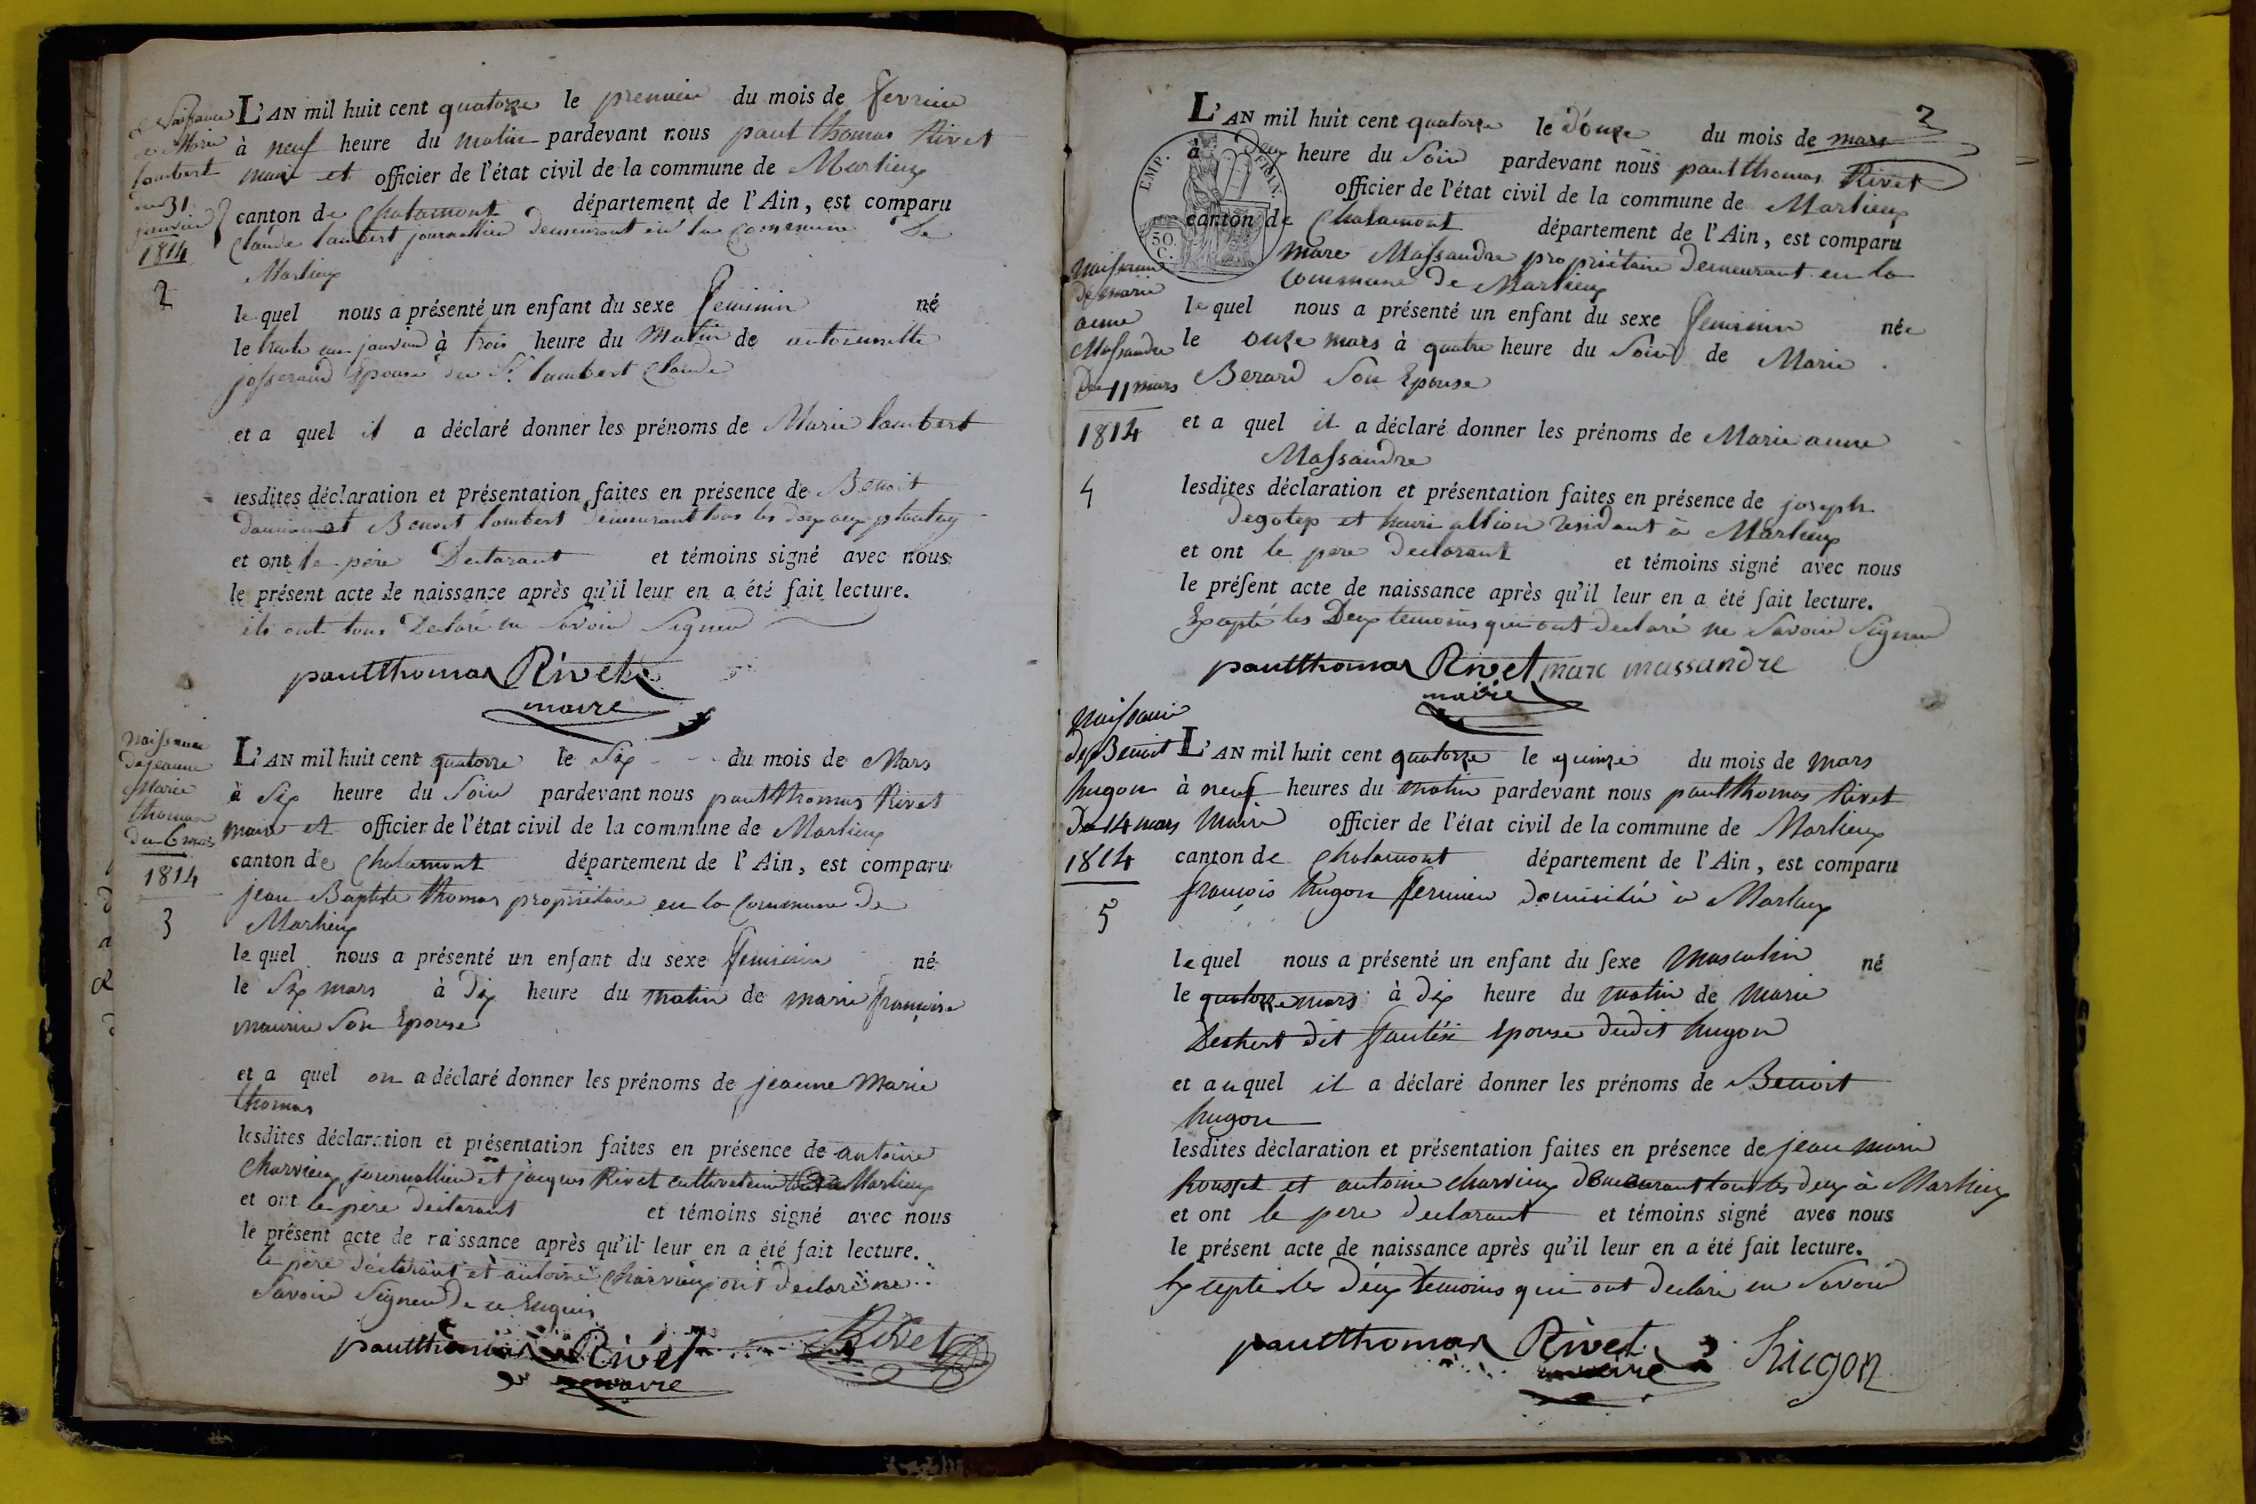 Naissance
de Marie
lambert
du 31
janvier
1814
2
L'AN mil huit cent quatorze le premier du mois de fevrier
à neuf heure du matin pardevant nous paul thomas Rivet
maire et officier de l'état civil de la commune de Marlieux
canton de Chalamont département de l'Ain, est comparu
Claude lambert journallier demeurant en la commune de
Marlieux
le quel nous a présenté un enfant du sexe feminin né
le trente un janvier à trois heure du Matin de antoinette
josserand Epouse du Sr. lambert Claude
et a quel il a déclaré donner les prénoms de Marie lambert
lesdites déclaration et présentation faites en présence de Benoit
et Benoit lambert demeurant tous les deux aux
et ont le père Declarant et témoins signé avec nous
le présent acte de naissance après qu'il leur en a été fait lecture.
ils ont tous Declaré ne savoir Signer
paulthomas Rivet
maire
Naissance
de jeanne
Marie
thomas
du 6 mars
1814
3
L'AN mil huit cent quatorze le Six du mois de Mars
à Six heure du Soir pardevant nous paul thomas Rivet
maire et officier de l'état civil de la commune de Marlieux
canton de Chalamont département de l'Ain, est comparu
jean Baptiste thomas propriétaire en la Commune de
Marlieux
le quel nous a présenté un enfant du sexe feminin né
le Six mars à Dix heure du matin de marie françoise
maurin Son Epouse
et a quel on a déclaré donner les prénoms de jeanne Marie
thomas
lesdites déclaration et présentation faites en présence de antoine
Charvieux journallier et jacques Rivet cultivateur Marlieux
et ont le père déclarant et témoins signé avec nous
le présent acte de naissance après qu'il leur en a été fait lecture.
le père déclarant et antoine Charvieux ont declaré ne
Savoir Signer De ce Enquis
paulthomas Rivet Rivet
maire
2
EMP. FRAN.
50.
C.
L'AN mil huit cent quatorze le douze du mois de mars
à Six heure du Soir pardevant nous paul thomas Rivet
officier de l'état civil de la commune de Marlieux
canton de Chalamont département de l'Ain, est comparu
Marc Massandre propriétaire demeurant en la
commune de Marlieux
Naissance
de marie
anne
Massandre
Du 11 mars
1814
4
le quel nous a présenté un enfant du sexe feminin née
le onze mars à quatre heure du Soir de Marie
Berard Son Epouse
et a quel il a déclaré donner les prénoms de Marie anne
Massandre
lesdites déclaration et présentation faites en présence de joseph
et henri allion résidant à Marlieux
et ont le père declarant et témoins signé avec nous
le présent acte de naissance après qu'il leur en a été fait lecture.
Excepté les Deux temoins qui ont declaré ne Savoir Signer
paulthomas Rivet marc massandre
maire
Naissance
de Benoit
hugon
Du 14 mars
1814
5
L'AN mil huit cent quatorze le quinze du mois de mars
à neuf heures du matin pardevant nous paul thomas Rivet
Maire officier de l'état civil de la commune de Marlieux
canton de Chalamont département de l'Ain, est comparu
françois hugon fermier domicilié à Marlieux
le quel nous a présenté un enfant du sexe masculin né
le quatorze mars à dix heure du matin de Marie
dit Epouse dudit hugon
et auquel il a déclaré donner les prénoms de Benoit
hugon
lesdites déclaration et présentation faites en présence de jean marie
Rousset et antoine charvieux demeurant tous les deux à Marlieux
et ont le père declarant et témoins signé avec nous
le présent acte de naissance après qu'il leur en a été fait lecture.
Excepté les deux temoins qui ont declaré ne Savoir
paulthomas Rivet hugon
maire